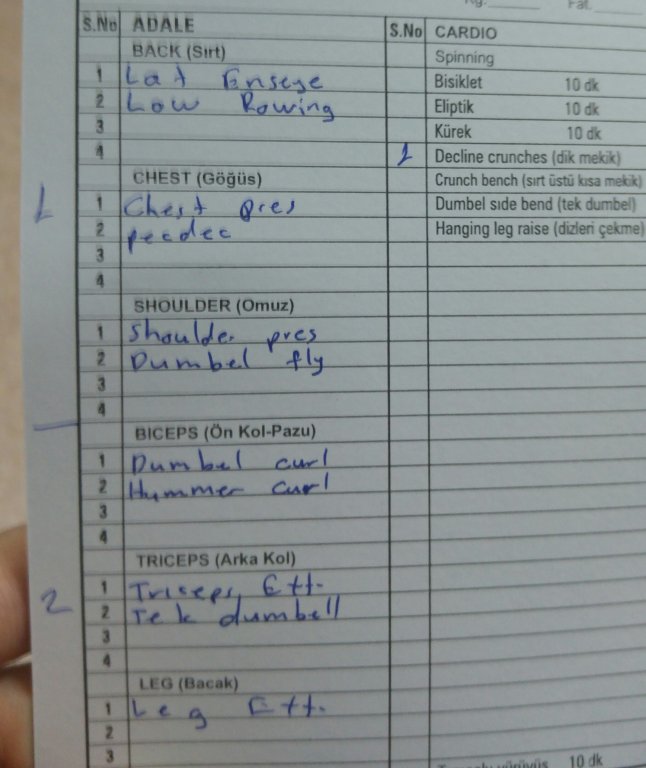 Kg. Fat.
S.No ADALE
BACK (Sırt)
1 Lat Enseye
2 Low Rowing
3
4
1
CHEST (Göğüs)
1 Chest pres
2 pecdec
3
4
SHOULDER (Omuz)
1 Shoulder pres
2 Dumbel fly
3
4
BICEPS (Ön Kol-Pazu)
1 Dumbel curl
2 Hummer curl
3
4
2
TRICEPS (Arka Kol)
1 Triceps Ett.
2 Tek dumbell
3
4
LEG (Bacak)
1 Leg Ett.
2
3
S.No CARDIO
Spinning
Bisiklet 10 dk
Eliptik 10 dk
Kürek 10 dk
1 Decline crunches (dik mekik)
Crunch bench (sırt üstü kısa mekik)
Dumbel sıde bend (tek dumbel)
Hanging leg raise (dizleri çekme)
yürüyüş 10 dk